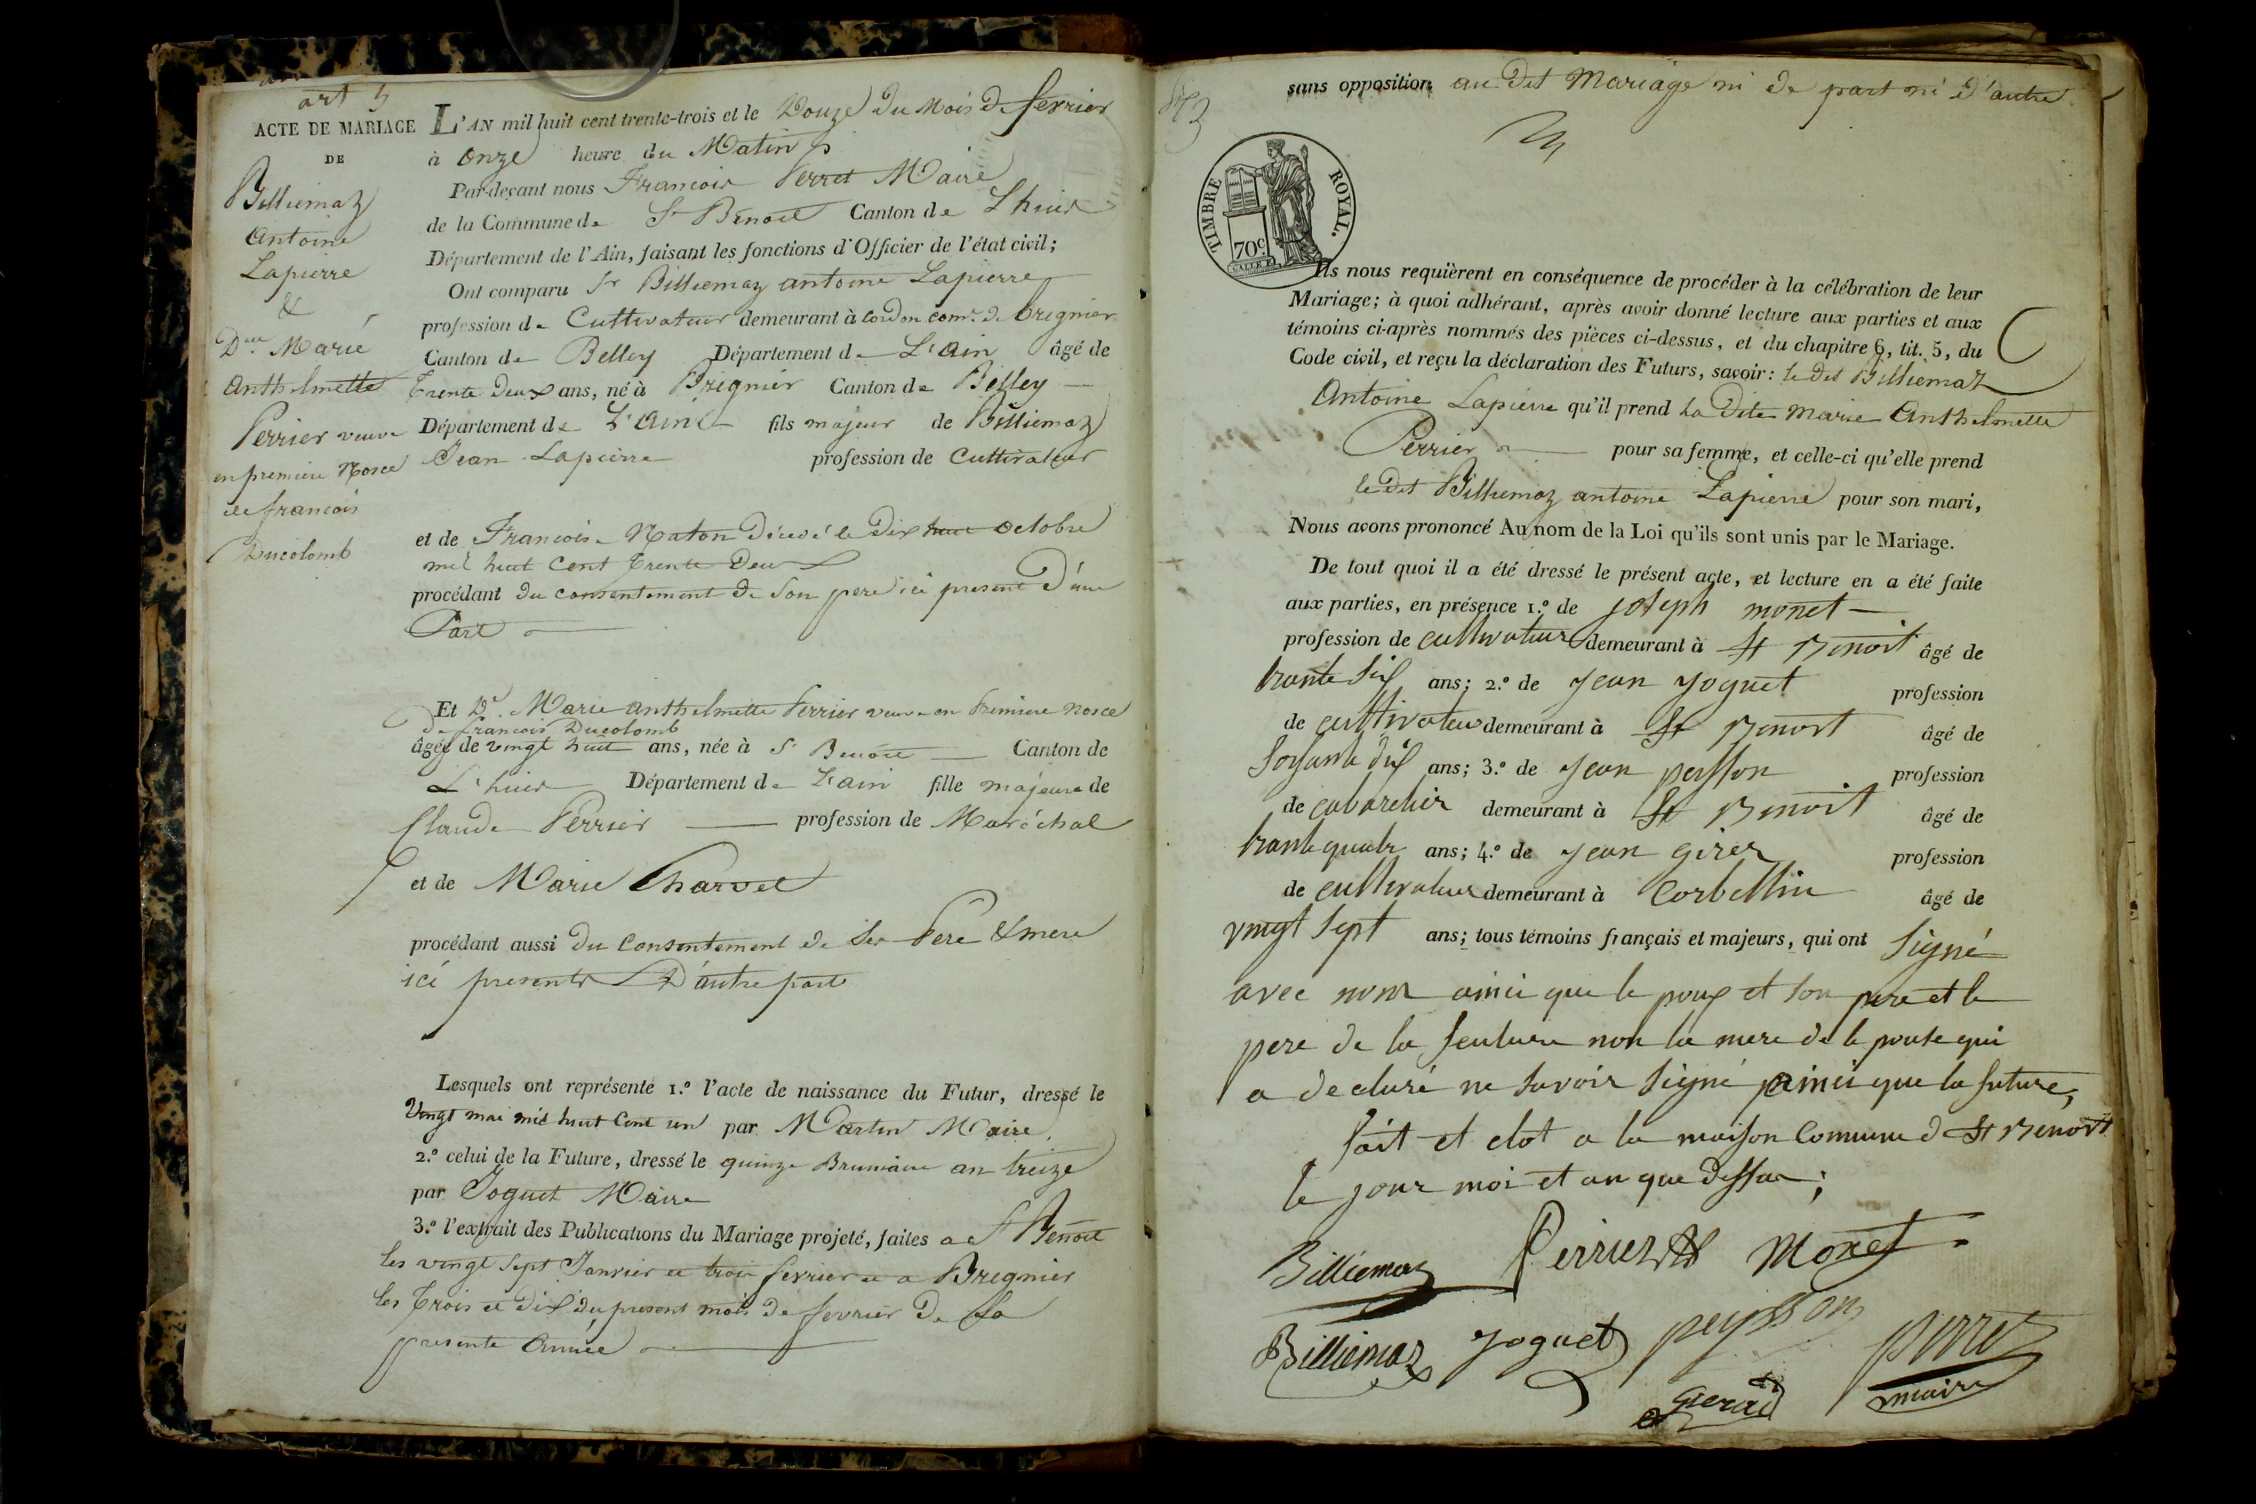 art 5
ACTE DE MARIAGE
DE
Billiemaz
Antoine
Lapierre
&
Dme Marie
Anthelmette
Perrier veuve
en premiere Nosce
de francois
Ducolomb
L'AN mil huit cent trente-trois et le Douze du Mois de fevrier
à onze heure du Matin
Par-deçant nous Francois Perret Maire
de la Commune de St Benoit Canton de Lhuis
Département de l'Ain, faisant les fonctions d'Officier de l'état civil;
Ont comparu Sr Billiemaz antoine Lapierre
profession de Cultivateur demeurant à Cordon comne de Bregnier
Canton de Belley Département de L'ain âgé de
trente deux ans, né à Bregnier Canton de Belley
Département de L'ain fils majeur de Billiemaz
Jean Lapierre profession de Cultivateur
et de Francoise Naton décédé le Dix huit Octobre
mil huit Cent trente Deux
procédant du consentement de Son pere ici present D'une
Part
Et De Marie anthelmette Perrier veuve en Premiere nosce
De francois Ducolomb
âgée de vingt huit ans, née à St Benoit Canton de
L'huis Département de L'ain fille majeure de
Claude Perrier profession de Maréchal
et de Marie Charvet
procédant aussi du Consentement de Ses Pere & mere
ici presents D'autre part
Lesquels ont représenté 1.º l'acte de naissance du Futur, dressé le
Vingt mai mil huit Cent un par Martin Maire
2.º celui de la Future, dressé le quinze Brumaire an treize
par Joguet Maire
3.º l'extrait des Publications du Mariage projeté, faites a St Benoit
les vingt Sept Janvier et trois fevrier et a Bregnier
les trois et dix du present mois de fevrier De la
presente Année
sans opposition au Dit Mariage ni de part ni d'autre
TIMBRE ROYAL.
70c
Ils nous requièrent en conséquence de procéder à la célébration de leur
Mariage; à quoi adhérant, après avoir donné lecture aux parties et aux
témoins ci-après nommés des pièces ci-dessus, et du chapitre 6, tit. 5, du
Code civil, et reçu la déclaration des Futurs, savoir: le dit Billiemaz
Antoine Lapierre qu'il prend la Dite Marie Anthelmette
Perrier pour sa femme, et celle-ci qu'elle prend
le dit Billiemaz antoine Lapierre pour son mari,
Nous avons prononcé Au nom de la Loi qu'ils sont unis par le Mariage.
De tout quoi il a été dressé le présent acte, et lecture en a été faite
aux parties, en présence 1.º de joseph monet
profession de cultivateur demeurant à St Benoit âgé de
trante six ans; 2.º de jean joguet profession
de cultivateur demeurant à St Benoit âgé de
soisante dix ans; 3.º de jean peysson profession
de cabaretier demeurant à St Benoit âgé de
trante quatre ans; 4.º de jean girer profession
de cultivateur demeurant à Corbellin âgé de
vingt sept ans; tous témoins français et majeurs, qui ont signé
avec nous ainsi que le poux et son pere et le
pere de la feuture non la mere de le pouse qui
a declaré ne savoir signé ainsi que la future,
fait et clot a la maison Commune d St Benoit
le jour moi et an que dessu;
Billiemaz Perrier Monet
Billiemaz joguet peysson perret
maire